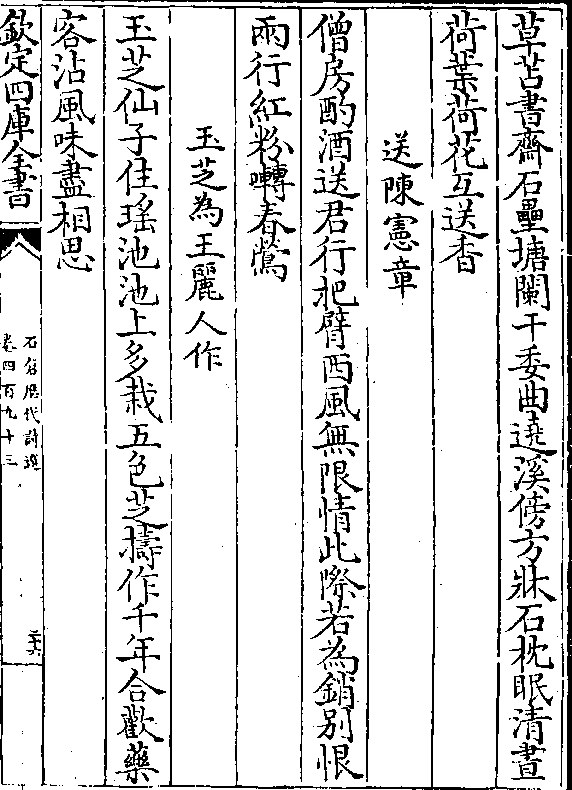 草苫書齋石壘塘闌干委曲遶溪傍方牀石枕眠清晝
荷葉荷花互送香
送陳憲章
僧房酌酒送君行把臂西風無限情此際若為銷别恨
兩行紅粉囀春鶯
玉芝為王麗人作
玉芝仙子住瑶池池上多栽五色芝擣作千年合歡藥
容沾風味盡相思
欽定四庫全書
石倉歷代詩選
卷四百九十三
二六